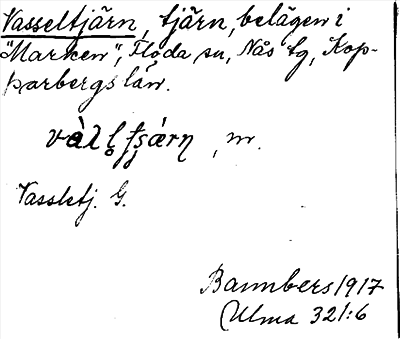 Vasseltjärn, tjärn, belägen i
"Marken", Floda sn, Nås tg, Kop-
parbergs län.
m.
Vassletj. G.
Bannbers 1917
Ulma 321:6